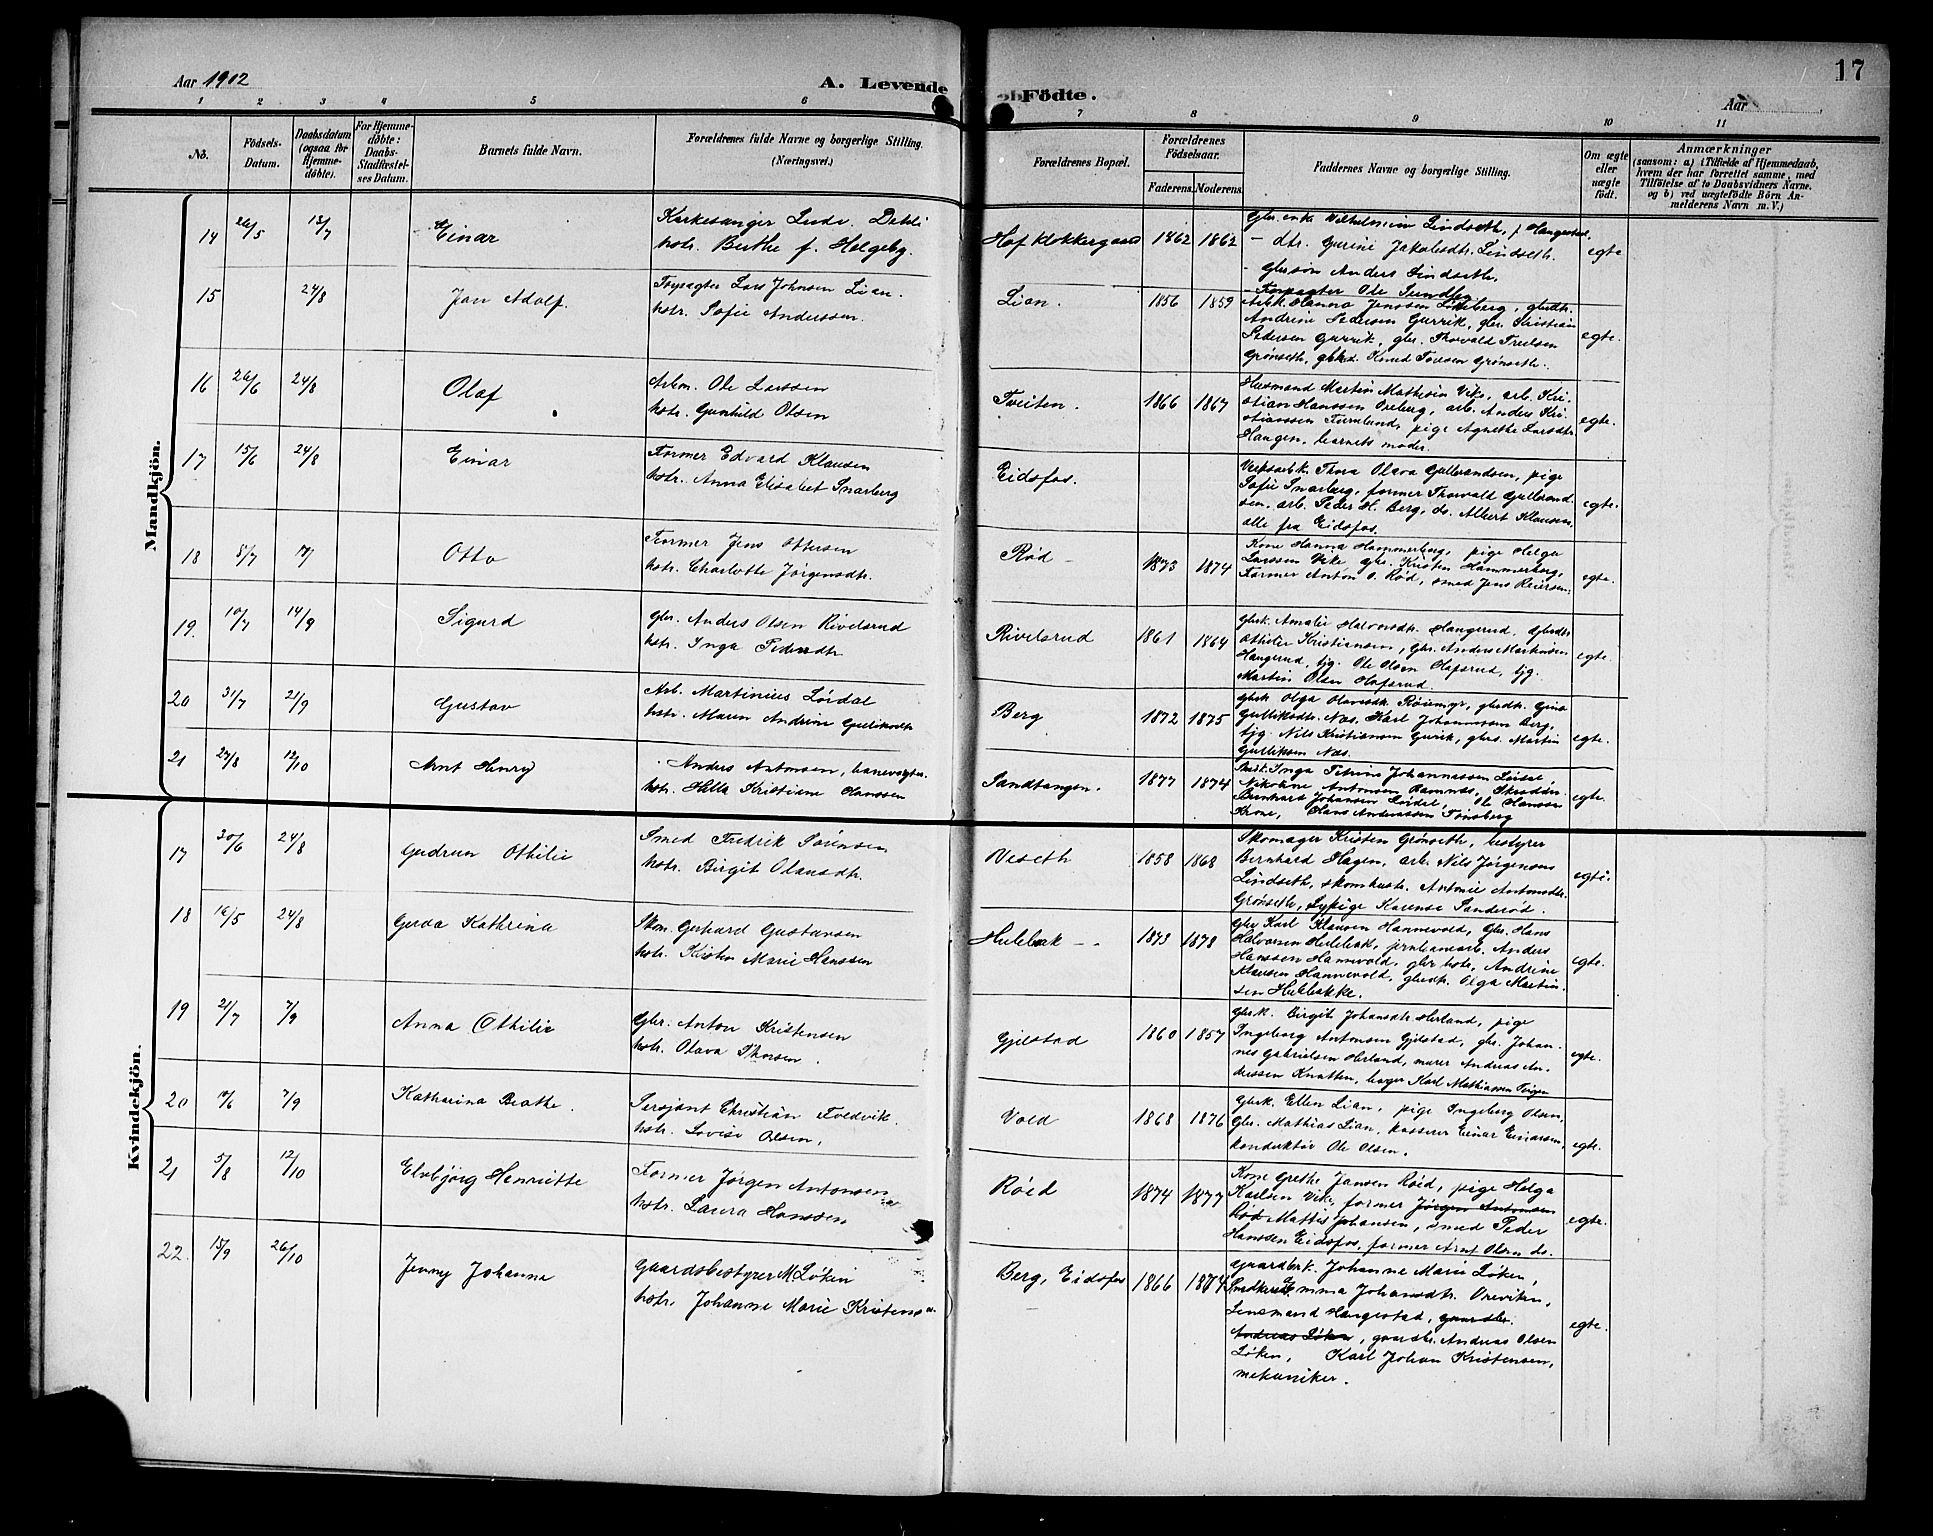 Aar 1902
A. Levende Födte.
Aar
17
1 2 3 4 5 6 7 8 9 10 11
No.
Födsels-Datum.
Daabsdatum (ogsaa for Hjemme-döbte).
For Hjemme-döbte: Daabs-Stadfæstel-ses Datum.
Barnets fulde Navn.
Forældrenes fulde Navne og borgerlige Stilling.
(Næringsvei.)
Forældrenes Bopæl.
Forældrenes Födselsaar.
Faderens. Moderens.
Faddernes Navne og borgerlige Stilling.
Om ægte eller uægte födt.
Anmærkninger
(saasom: a) i Tilfælde af Hjemmedaab,
hvem der har forrettet samme, med
Tilföielse af to Daabsvidners Navne.
og b) ved uægtefödte Börn An-
melderens Navn m. V.)
Mandkjön.
14 26/5 13/7 Einar
Kirkesanger Ludv. Detli
hstr. Berthe f. Helgeby.
Hof klokkergaard 1862 1862
Gbr. enk. Vilhelmine Lindseth, f. Haugestad,
– dtr. Gurine Jakobsdtr. Lindseth.
– Gbrsøn Anders Lindseth.
– Forpagter Ole Sundby
egte
15 24/8 Jan Adolf.
Forpagter Lars Johnsen Lian.
hstr. Sofie Anderssen.
Lian. 1856 1859
Arbk. Hanna Jenssen Løkeberg, gbrdtr.
Andrine Pedersen Gurrik, gbr. Kristian
Pedersen Gurrik, gbr. Thorvald Truelsen
Grønseth, gbrkd. Knud Foresen Grønseth.
egte.
16 26/6 24/8 Olaf
Arbm. Ole Larssen
hstr. Gunhild Olsen
Tveiten. 1866 1867
Husmand Martin Mathesen Vike, arb. Kri-
stian Hanssen Oreberg, arb. Anders Kri-
stianssen Furulund, pige Agnethe Larsdtr.
Haugen, barnets moder.
egte.
17 15/6 24/8 Einar
Former Edvard Klausen
hstr. Anna Elisabet Snarberg
Eidsfos.
Verksarbk. Thora Olava Gulbrandsen, pige
Sofie Snarberg, former Thorvald Gulbrand-
sen, arb. Peder H. Berg, do. Albert Klausen,
alle fra Eidsfos.
egte.
18 8/7 17/ Otto
Former Jens Ottersen
hstr. Charlotte Jørgensdtr.
Rød – 1873 1874
Kone Hanna Hammerberg, pige Helga
Larssen Vike, gbr. Kristen Hammerberg,
Former Anton O. Rød, smed Jens Reiersen.
egte.
19. 10/7 14/9 Sigurd
Gbr. Anders Olsen Rivelsrud
hstr. Inga Pedersdtr.
Rivelsrud 1861 1864
Gbrk. Amalie Halvorsdtr. Haugerud, Gbrdtr.
Othilie Kristiansen, Gbr. Anders Martinsen
Haugerud, tjg. Ole Olsen Hafsrud, tjg.
Martin Olsen Hafsrud.
egte.
20 31/7 21/9 Gustav
Arb. Martinius Løvdal
hstr. Maren Andrine Gulliksdtr.
Berg 1872 1875
Gbrk. Olga Olavesdtr. Røiemyr, gbrdtr. Gina
Gulliksdtr. Næs. Karl Johannessen Berg,
tjg. Nils Kristiansen Gurik, gbrs. Martin
Gulliksen Næs.
egte.
21 27/8 12/10 Arnt Henry
Anders Antonsen, banevogter
hstr. Hilla Kristiane Hanssen
Sandtangen. 1877 1874
Inga Petrine Johannessen
Nikoline Antonsen Ramnæs, Skrædder
Bernhard Johansen, Ole Hanssen
Krone, Hans Anderssen Tønsberg
egte.
Kvindekjön.
17 30/6 24/8 Gudrun Othilie
Smed Fredrik Sørensen
hstr. Birgit Olausdtr.
Veseth 1858 1868
Skomager Kristen Grønseth, bestyrer
Bernhard Hagen, arb. Nils Jørgensen
Lindseth, skomhustr. Antonie Antonsdtr.
Grønseth, Sypige Karense Sanderød.
egte.
18 16/5 24/8 Gerda Kathrina
Skom. Gerhard Gustavsen
hstr. Kirsten Marie Hanssen
Hulebak – - 1873 1878
Gbr Karl Klausen Hannevold, Gbr. Hans
Halvorsen Hulebak, jernbanearb. Anders
Hanssen Hannevold, gbr hstr. Andrine
Klausen Hannevold, gbrdtr. Olga Martin-
sen Hulebakke.
egte.
19 21/7 7/9 Anna Othilie
Gbr. Anton Kristensen
hstr. Olava Thorsen.
Gjelstad 1860 1857
Gbrk. Birgit Johansdtr. Herland, pige
Ingeborg Antonsen Gjelstad, gbr. Johan-
nes Gabrielsen Herland, murer Andreas An-
derssen Knatten, bager Karl Mathiassen Teigen
egte.
20 10/6 7/9 Katharina Beathe.
Sersjant Christian Tvedvik.
hstr. Lovise Olsen.
Vold 1868 1876
Gbrk. Ellen Lian, pige Ingeborg Olsen,
Gbr. Mathias Lian, kasserer Einar Einarsen,
konduktør Ole Olsen.
egte.
21 5/8 12/10 Elvbjørg Henriette
Former Jørgen Antonsen
hstr. Laura Hanssen
Røed 1874 1877
Kone Grethe Jansen Røed, pige Helga
Karlsen Vike, former Jørgen Antonsen
Rød Mattis Johansen, smed Peder
Hanssen Eidsfos, former Arnt Olsen do.
egte.
22. 15/9 26/10 Jenny Johanna
Gaardsbestyrer M Løken
hstr. Johanne Marie Kristensen.
Berg, Eidsfos 1866 1874
Gaardbrk. Johanne Marie Løken,
Emma Johansdtr. Oreviken,
Lensmand Haugestad, gaardbr.
Andreas Løken, gaardbr. Andreas Olsen
Løken, Karl Johan Kristensen,
mekaniker.
egte.